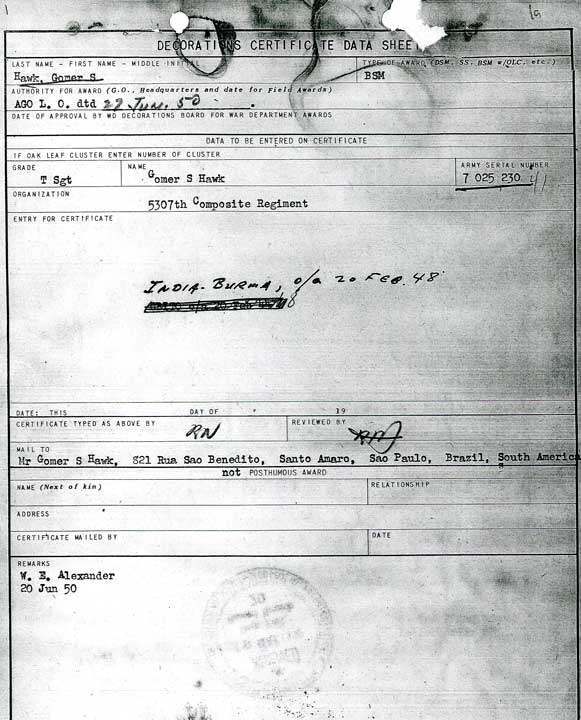 DECORATIONS CERTIFICATE DATA SHEET
LAST NAME - FIRST NAME - MIDDLE INITIAL
TYPE OF AWARD (DSM, SS, BSM w/OLC, etc.)
Hawk, Gomer S
BSM
AUTHORITY FOR AWARD (G.O., Headquarters and date for Field Awards)
AGO L. O. dtd 27 Jun. 50
DATE OF APPROVAL BY WD DECORATIONS BOARD FOR WAR DEPARTMENT AWARDS
DATA TO BE ENTERED ON CERTIFICATE
IF OAK LEAF CLUSTER ENTER NUMBER OF CLUSTER
GRADE
NAME
ARMY SERIAL NUMBER
T Sgt
Gomer S Hawk
7 025 230
ORGANIZATION
5307th Composite Regiment
ENTRY FOR CERTIFICATE
INDIA-BURMA, o/a 20 FEB. 48
DATE: THIS DAY OF 19
CERTIFICATE TYPED AS ABOVE BY
RN
REVIEWED BY
MAIL TO
Mr Gomer S Hawk, 821 Rua Sao Benedito, Santo Amaro, Sao Paulo, Brazil, South America
not POSTHUMOUS AWARD
NAME (Next of kin)
RELATIONSHIP
ADDRESS
CERTIFICATE MAILED BY
DATE
REMARKS
W. E. Alexander
20 Jun 50